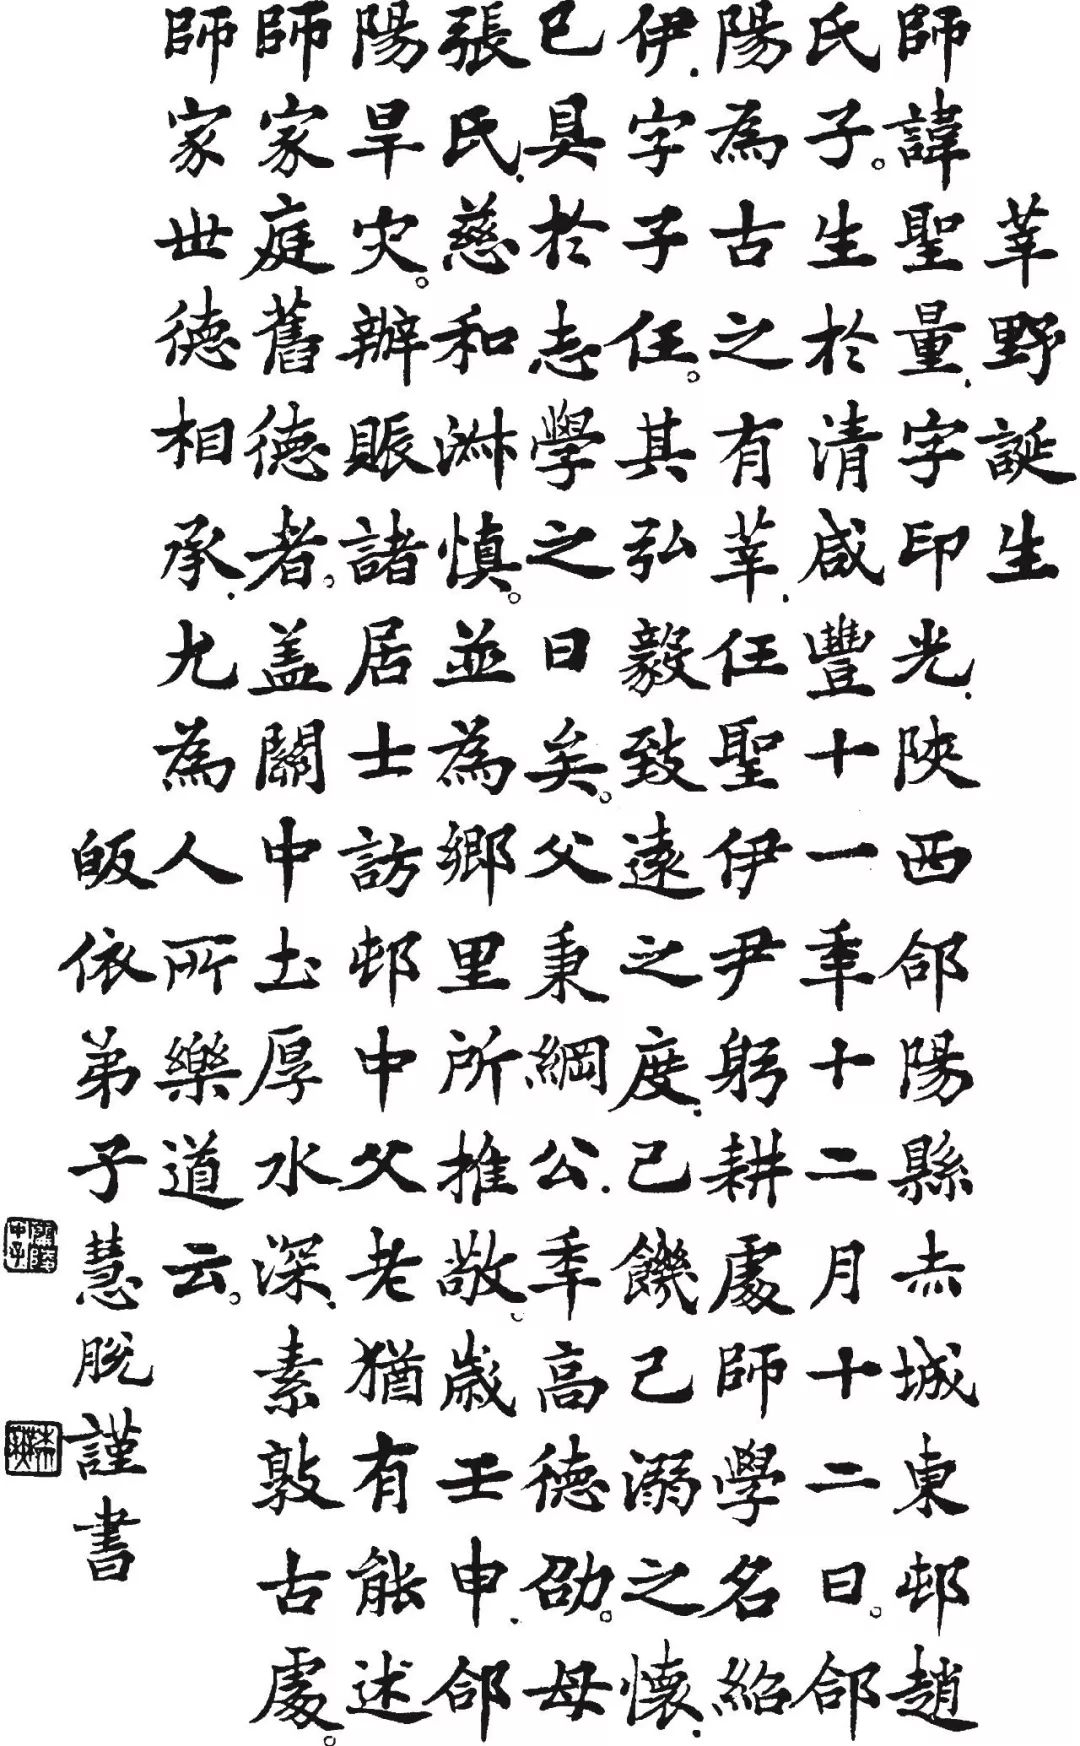 莘野誕生
師諱聖量.字印光.陝西郃陽縣赤城東邨趙
氏子。生於清咸豐十一年十二月十二日。郃
陽為古之有莘.任聖伊尹躬耕處師學名紹
伊.字子任。其弘毅致遠之度.己饑己溺之懷.
已具於志學之日矣。父秉綱公.季高德劭。母
張氏.慈和淋慎。並為鄉里所推敬。歲壬申.郃
陽旱灾。辦賑諸居士訪邨中父老猶有能述
師家庭舊德者。盖關中土厚水深.素敦古處。
師家世德相承.尤為人所樂道云。
皈依弟子慧脫謹書